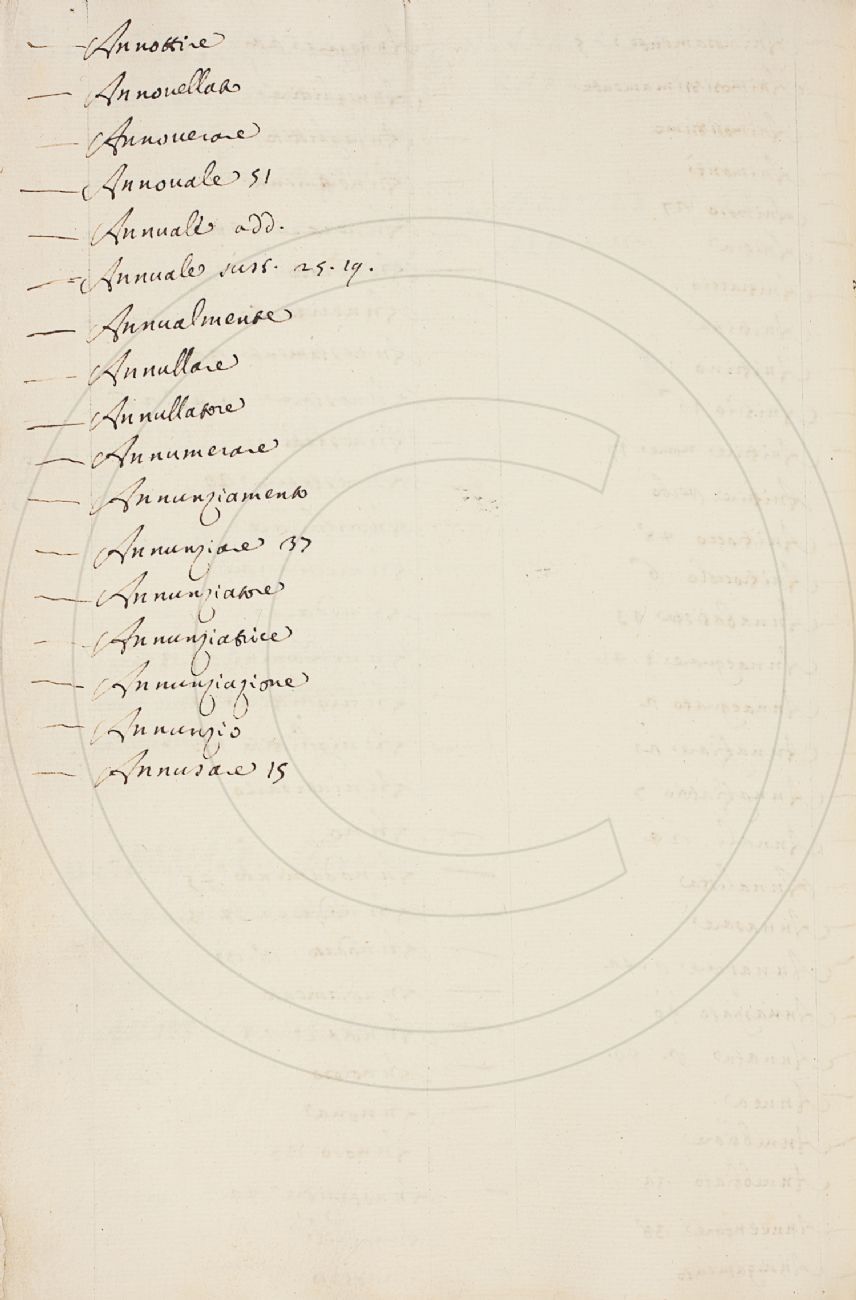 — Annottire
— Annouellato
— Annouerare
— Annouale 51
— Annuale add.
— Annuale sust. 25. 19.
— Annualmente
— Annullare
— Annullatore
— Annumerare
— Annunziamento
— Annunziare 37
— Annunziatore
— Annunziatrice
— Annunziazione
— Annunzio
— Annusare 15